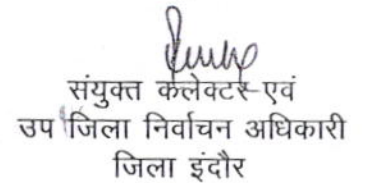 संयुक्त कलेक्टर एवं
उप जिला निर्वाचन अधिकारी
जिला इंदौर